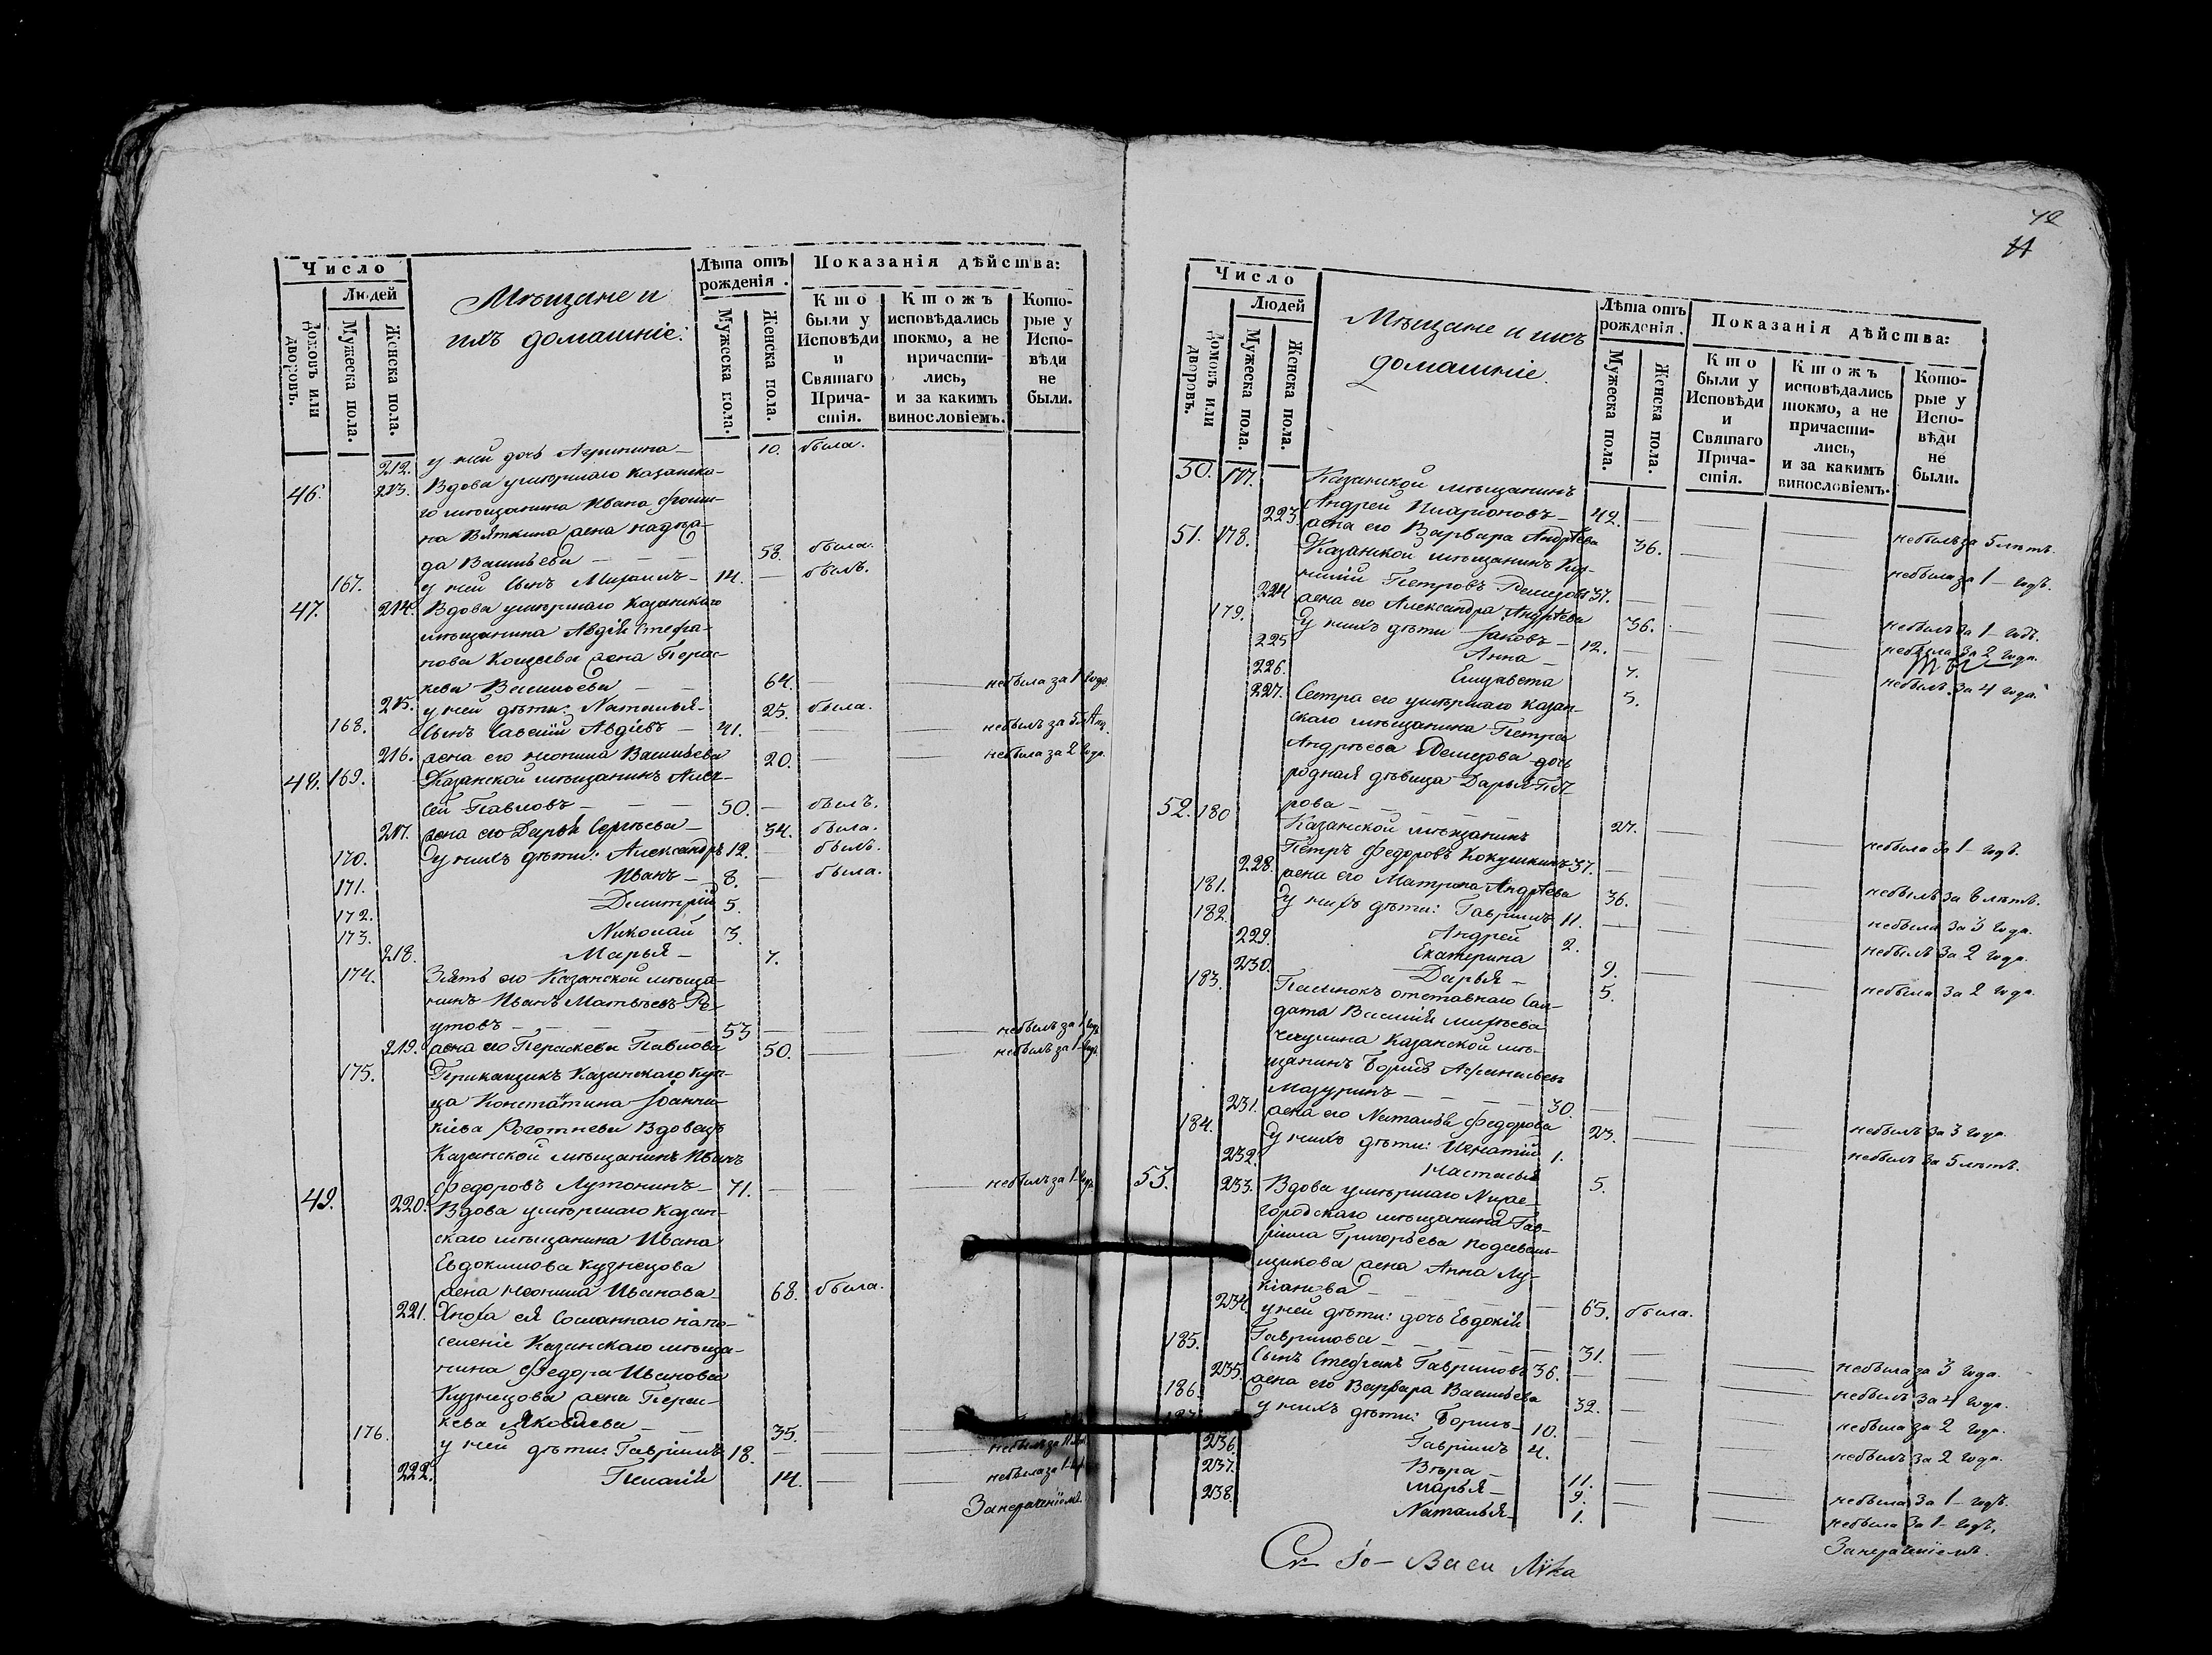 Число
Людей
Домовъ или дворовъ.
Мужеска пола.
Женска пола.
Мѣщане и
ихъ домашніе:
Лѣта отъ рожденія.
Мужеска пола.
Женска пола.
Показанія дѣйства:
Кто были у Исповѣди и Святаго Прича-стія.
Ктожъ исповѣдались токмо, а не причасти-лись, и за какимъ винословіемъ.
Кото-рые у Испо-вѣди не были.
212. у ней дочь Агрипина 10. была.
46. 213. Вдова умершаго Казанска-
го мѣщанина Ивана Фоми-
на Вяткина жена Надеж-
да Васильева 58. была.
167. у ней сынъ Михаилъ 14. былъ.
47. 214. Вдова умершаго Казанскаго
мѣщанина Авдія Стефа-
нова Кощеева жена Парас-
кева Васильева 64. небыла за 1 годъ
215. у ней дѣти: Наталья 25. была.
168. Сынъ Савелій Авдіевъ 41. небылъ за 5 лѣтъ.
216. жена его Неонила Васильева 20. небыла за 2 года.
48. 169. Казанской мѣщанинъ Алек-
сей Павловъ 50. былъ.
217. жена его Дарья Сергѣева 34. была.
170. У нихъ дѣти: Александръ 12. былъ.
171. Иванъ 8. была.
172. Димитрій 5.
173. Николай 3.
218. Марья 7.
174. Зять его Казанской мѣща-
нинъ Иванъ Матвѣевъ Ре-
утовъ 53 небылъ за 1 годъ
219. жена его Параскева Павлова 50. небылъ за 1 годъ.
175. Прикащикъ Казанскаго куп-
ца Константина Іоанни-
кіева Роготнева Вдовецъ
Казанской мѣщанинъ Иванъ
Федоровъ Лутонинъ 71. небылъ за 1 годъ.
49. 220. Вдова умершаго Казан-
скаго мѣщанина Ивана
Евдокимова Кузнецова
жена Неонила Иванова 68. была.
221. Сноха ея Сосланнаго на по-
селеніе Казанскаго мѣща-
нина Федора Иванова
Кузнецова жена Парас-
кева Яковлева 35.
176. у ней дѣти: Гавріилъ 18.
222. Пелагія 14. небыла за 1 годъ
Занераченіемъ.
42
Число
Людей
Домовъ или дворовъ.
Мужеска пола.
Женска пола.
Мѣщане и ихъ
домашніе.
Лѣта отъ рожденія.
Мужеска пола.
Женска пола.
Показанія дѣйства:
Кто были у Исповѣди и Святаго Прича-стія.
Ктожъ исповѣдались токмо, а не причасти-лись, и за какимъ винословіемъ.
Кото-рые у Испо-вѣди не были.
50. 177. Казанской мѣщанинъ
Андрей Иларіоновъ 42. небылъ за 5 лѣтъ.
223. жена его Варвара Андрѣева 36. небыла за 1 годъ.
51. 178. Казанской мѣщанинъ Кор-
нилій Петровъ Ремезовъ 37. небылъ за 1 годъ.
224. жена его Александра Андрѣева 36. небыла за 2 года.
179. У нихъ дѣти Іаковъ 12. небылъ за 4 года.
225 Анна 7.
226. Елизавета 5.
227. Сестра его умершаго Казан-
скаго мѣщанина Петра
Андрѣева Ремезова дочь
родная дѣвица Дарья Пет-
рова 27. небыла за 1 годъ.
52. 180 Казанской мѣщанинъ
Петръ Федоровъ Кокушкинъ 37. небылъ за 6 лѣтъ.
228. жена его Матрона Андрѣева 36. небыла за 3 года.
181. У нихъ дѣти: Гавріилъ 11. небылъ за 2 года.
182. Андрей 2.
229. Екатерина 9. небыла за 2 года.
230. Дарья 5.
183. Пасынокъ отставнаго Сол-
дата Василія
Казанской мѣ-
щанинъ Борисъ Афанасьевъ
Мазуринъ 30. небылъ за 3 года.
231. жена его Наталья Федорова 23. небылъ за 5 лѣтъ.
184. У нихъ дѣти: Игнатій 1.
232. Настасья 5.
53. 233. Вдова умершаго Ниже-
городскаго мѣщанина Гав-
ріила Григорьева
жена Анна Лу-
кіанова 65. была.
234. у ней дѣти: дочь Евдокія
Гаврилова 31. небыла за 3 года.
185. Сынъ Стефанъ Гавриловъ 36. небылъ за 4 года.
235. жена его Варвара Васильева 32. небыла за 2 года.
186. У нихъ дѣти: Борисъ 10. небылъ за 2 года.
187. Гавріилъ 4.
236. Вѣра 11. небыла за 1 годъ.
237. Марья 9. небыла за 1 годъ,
238. Наталья 1. Занераченіемъ.
Васи Лука